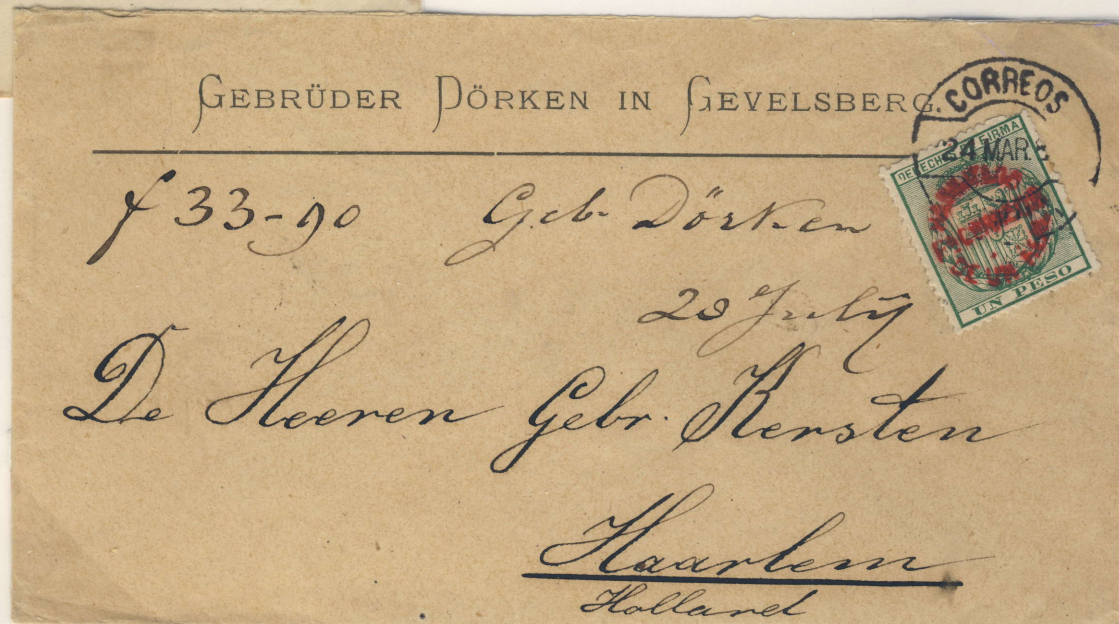 GEBRÜDER DÖRKEN IN GEVELSBERG.
CORREOS
24 MAR.
DERECHOS FIRMA
UN PESO
f 33-90 Geb. Dörken
28 July
De Heeren Gebr. Kersten
Haarlem
Holland